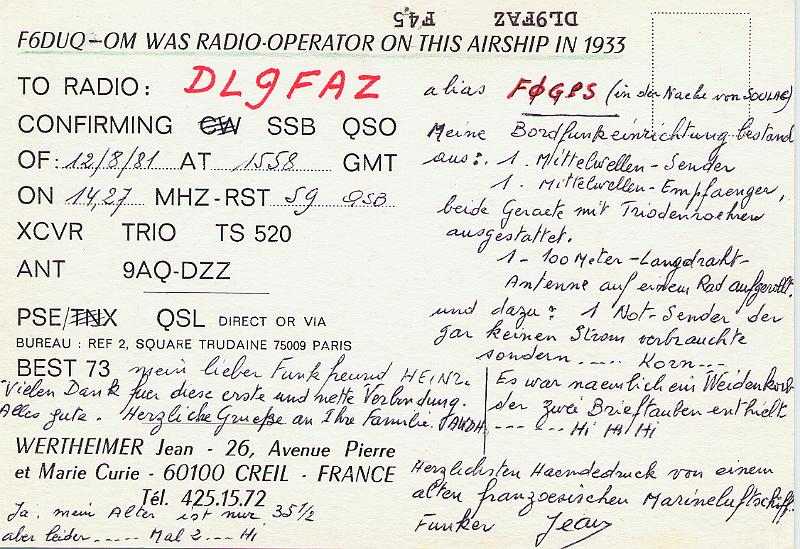 F45 DL9FAZ
F6DUQ-OM WAS RADIO-OPERATOR ON THIS AIRSHIP IN 1933
TO RADIO: DL9FAZ
CONFIRMING CW SSB QSO
OF: 12/8/81 AT 1558 GMT
ON 14,27 MHZ-RST 59 QSB
XCVR TRIO TS 520
ANT 9AQ-DZZ
PSE/TNX QSL DIRECT OR VIA
BUREAU : REF 2, SQUARE TRUDAINE 75009 PARIS
BEST 73 mein lieber Funkfreund HEINZ.
Vielen Dank fuer diese erste und nette Verbindung.
Alles gute. Herzliche Gruesse an Ihre Familie. AWDH.
WERTHEIMER Jean - 26, Avenue Pierre
et Marie Curie - 60100 CREIL - FRANCE
Tél. 425.15.72
Ja, mein Alter ist nur 35 1/2
aber leider ..... Mal 2 ... Hi
alias FØGPS (in der Naehe von SOULAC)
Meine Bordfunkeinrichtung bestand
aus: 1. Mittelwellen-Sender
1. Mittelwellen-Empfaenger,
beide Geraete mit Triodenroehren
ausgestattet.
1 - 100 Meter-Langdraht-
Antenne auf einem Rad aufgerollt.
und dazu: 1 Not-Sender der
gar keinen Strom verbrauchte
sondern ..... Korn---
Es war naemlich ein Weidenkorb
der zwei Brieftauben enthielt
- - - - - Hi Hi Hi
Herzlichsten Haendedruck von einem
alten franzoesischen Marineluftschiff-
Funker Jean